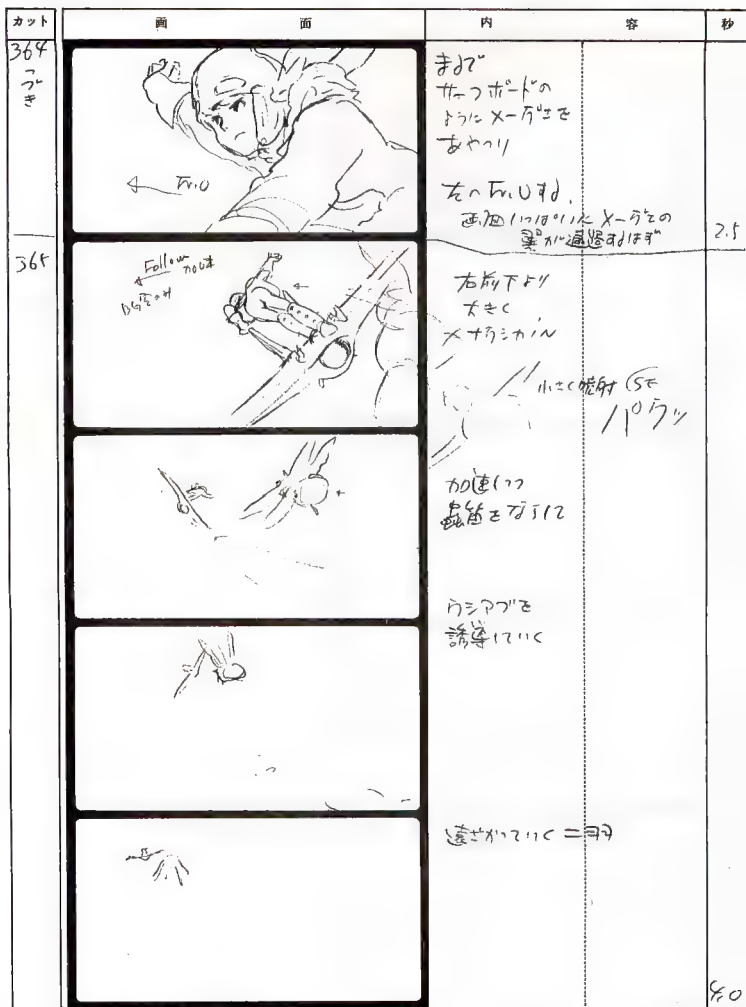 カット
画面
内容
秒
364
つづき
まるで
サーフボードの
ようにメーヴェを
あやつり
← Fr.O
左へ Fr.O する。
画面いっぱいにメーヴェの
翼が通過するはず
2.5
365
Follow
加速
BG空のみ
右前下より
大きく
小さく噴射 (SE
パラッ
加速しつつ
蟲笛をならして
ウシアブを
誘導していく
遠ざかっていく二羽
4.0